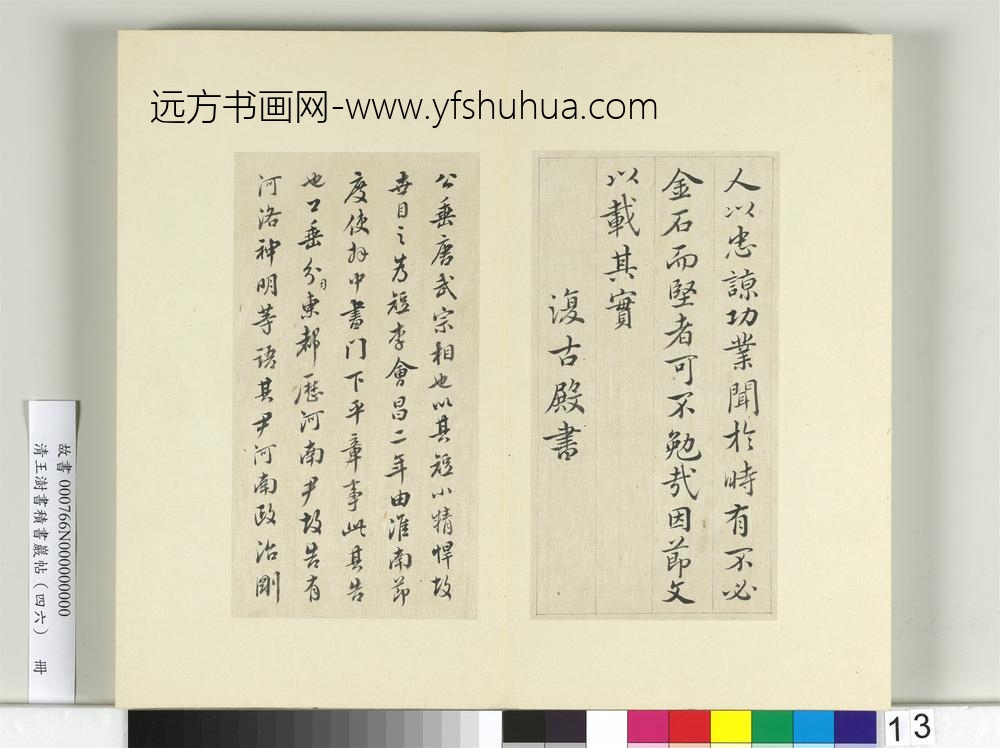 远方书画网-www.yfshuhua.com
人以忠諒功業聞於時有不必
金石而堅者可不勉哉因節文
以載其實
復古殿書
公垂唐武宗相也以其短小精悍故
世目之為短李會昌二年由淮南節
度使拜中書门下平章事此其告
也公垂分司東都歷河南尹故告有
河洛神明等语其尹河南政治剛
故書 000766N000000000
清王澍書積書巖帖（四六） 冊
13